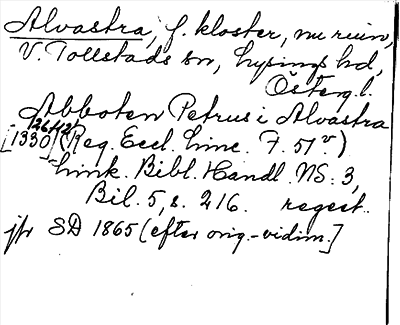 Alvastra, f. kloster, nu ruin,
V. Tollstads sn, Lysings hd,
Österg. l.
Abboten Petrus i Alvastra
[1330 26/12] (Reg. Eccl. Linc. F. 51v)
Link. Bibl. Handl. NS. 3,
Bil. 5, s. 216. regest.
jfr SD 1865 (efter orig.-vidim.]